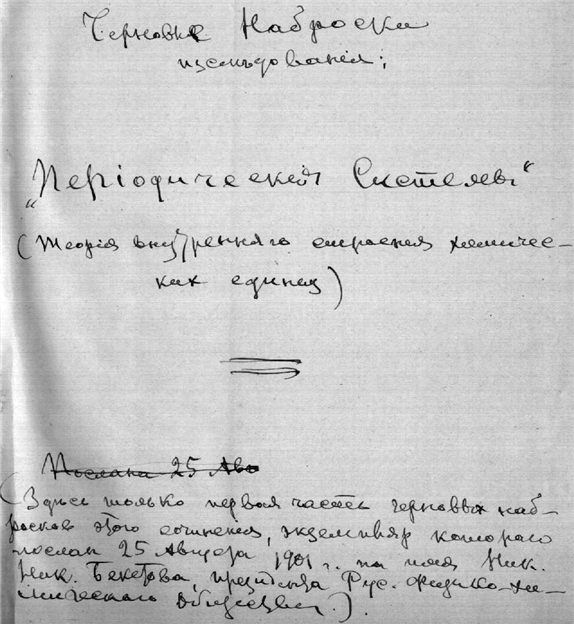 Черновые Наброски
изслѣдованія:
„Періодическія Системы“
(Теорія внутренняго строенія химичес-
ких единиц)
Послана 25 Авг
(Здѣсь только первая часть черновых наб-
росков этого сочиненія, экземпляр котораго
послан 25 Августа 1901 г. на имя Ник.
Ник. Бекетова, президента Рус. Физико-хи-
мическаго Общества.)